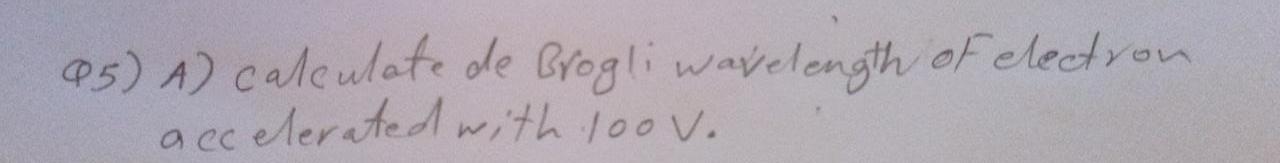 Q5) A) calculate de Brogli wavelength of electron
accelerated with 100 V.